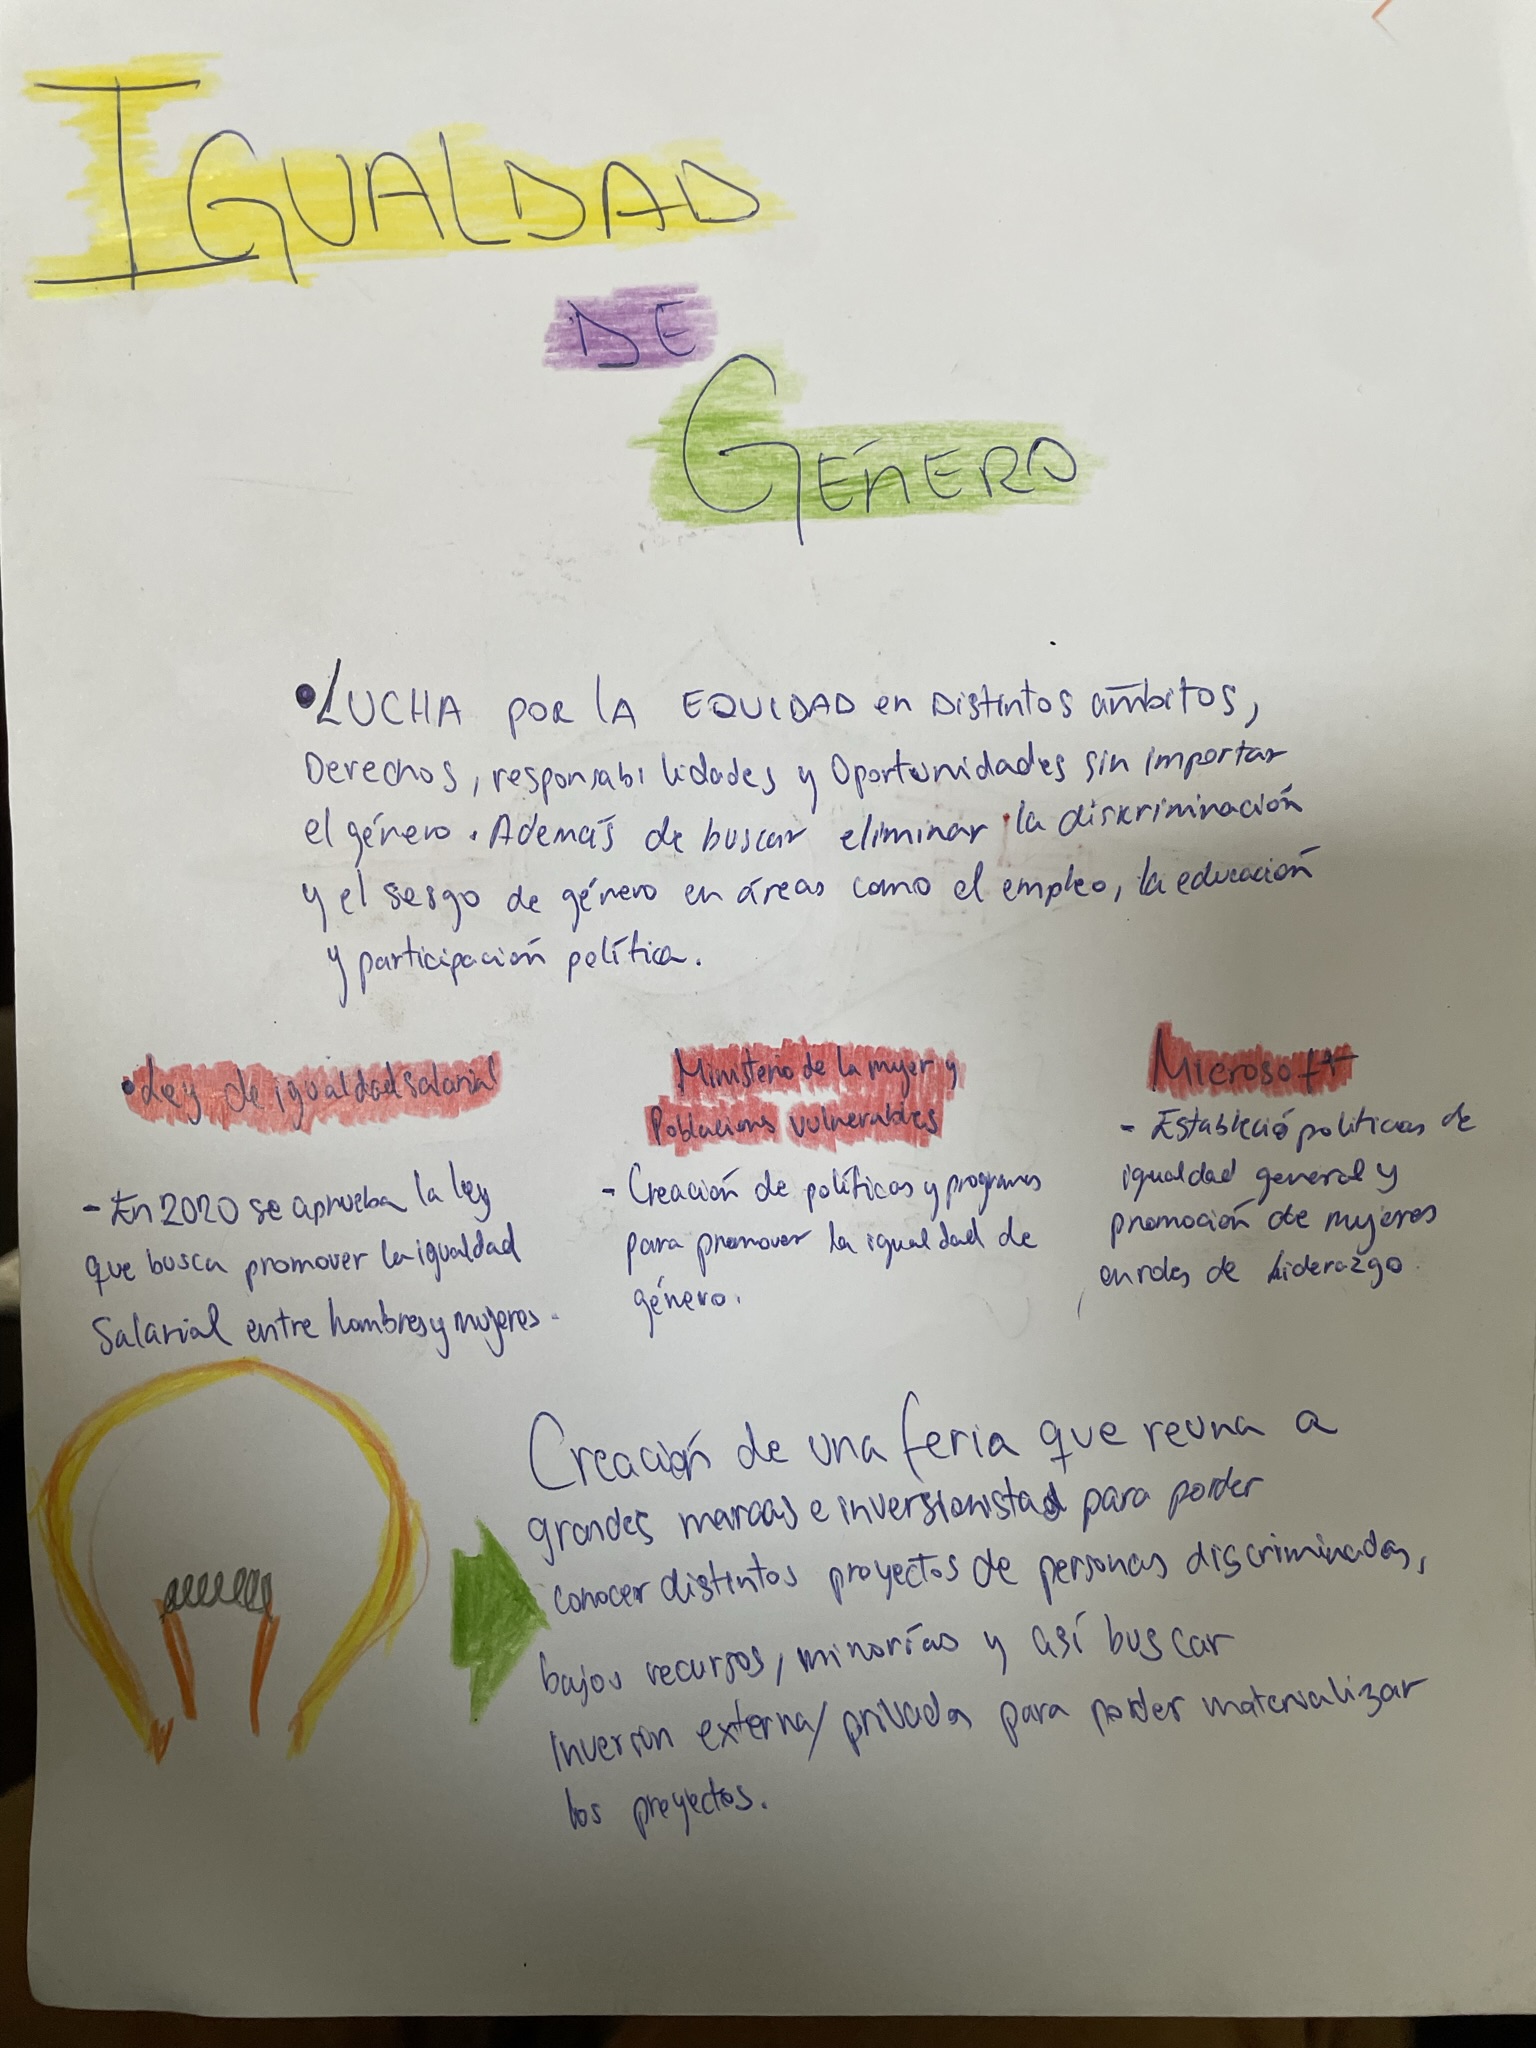 IGUALDAD
DE
GÉNERO
•LUCHA POR LA EQUIDAD en Distintos ámbitos,
Derechos, responsabilidades y Oportunidades sin importar
el género. Además de buscar eliminar la discriminación
y el sesgo de género en áreas como el empleo, la educación
y participación política.
•Ley de igualdad salarial
- En 2020 se aprueba la ley
que busca promover la igualdad
Salarial entre hombres y mujeres.
Ministerio de la mujer y
Poblacions vulnerables
- Creación de políticas y programas
para promover la igualdad de
género.
Microsoft
- Estableció politicas de
igualdad general y
promoción de mujeres
en roles de Liderazgo
Creación de una feria que reuna a
grandes marcas e inversionistas para poder
conocer distintos proyectos de personas discriminadas,
bajos recursos, minorías y así buscar
inversión externa/privada para poder materializar
los proyectos.